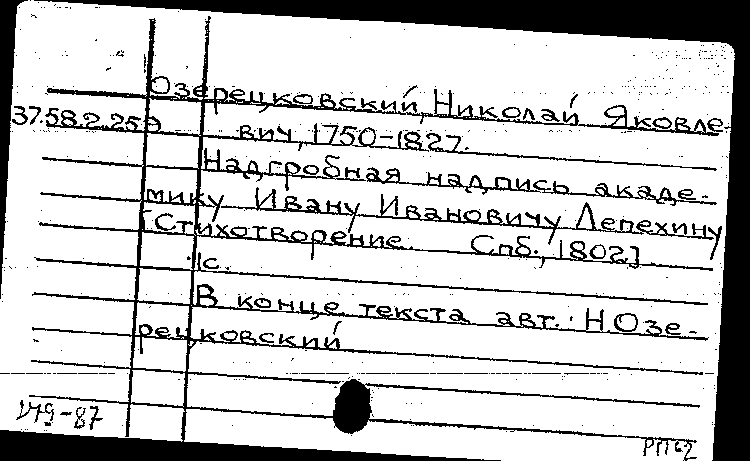 Озерецковский, Николай Яковле-
37.58.2.259 вич, 1750-1827.
Надгробная надпись акаде-
мику Ивану Ивановичу Лепехину
[Стихотворение. Спб., 1802]
1с.
В конце текста авт.: Н.Озе-
рецковский
И79-87
РПБ2